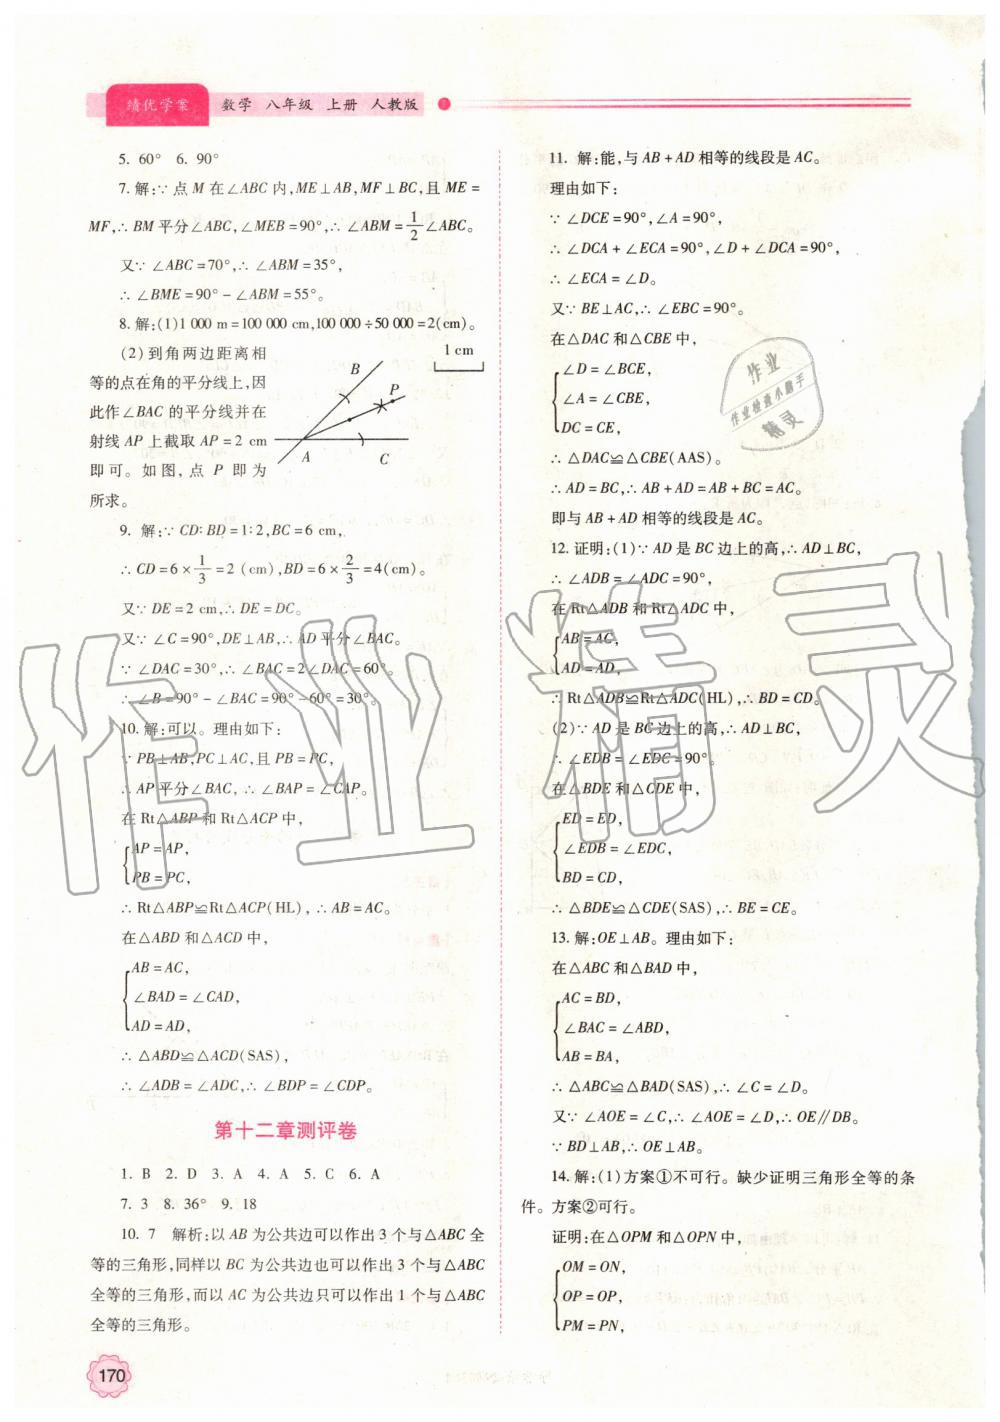 绩优学案 数学 八年级 上册 人教版
5. 60° 6. 90°
7. 解:∵点 M 在∠ABC 内,ME⊥AB,MF⊥BC,且 ME =
MF,∴ BM 平分∠ABC,∠MEB = 90°,∴ ∠ABM = 1/2 ∠ABC。
又∵ ∠ABC = 70°,∴ ∠ABM = 35°,
∴ ∠BME = 90° − ∠ABM = 55°。
8. 解:(1)1 000 m = 100 000 cm,100 000 ÷ 50 000 = 2(cm)。
(2)到角两边距离相
等的点在角的平分线上,因
此作∠BAC 的平分线并在
射线 AP 上截取 AP = 2 cm
即可。如图,点 P 即为
所求。
1 cm
B
P
A
C
9. 解:∵ CD∶BD = 1∶2,BC = 6 cm,
∴ CD = 6 × 1/3 = 2 (cm),BD = 6 × 2/3 = 4(cm)。
又∵ DE = 2 cm,∴ DE = DC。
又∵ ∠C = 90°,DE⊥AB,∴ AD 平分∠BAC。
∵ ∠DAC = 30°,∴ ∠BAC = 2∠DAC = 60°。
∴ ∠B = 90° − ∠BAC = 90° − 60° = 30°。
10. 解:可以。理由如下:
∵ PB⊥AB,PC⊥AC,且 PB = PC,
∴ AP 平分∠BAC,∴ ∠BAP = ∠CAP。
在 Rt△ABP 和 Rt△ACP 中,
AP = AP,
PB = PC,
∴ Rt△ABP≌Rt△ACP(HL),∴ AB = AC。
在△ABD 和△ACD 中,
AB = AC,
∠BAD = ∠CAD,
AD = AD,
∴ △ABD≌△ACD(SAS),
∴ ∠ADB = ∠ADC,∴ ∠BDP = ∠CDP。
第十二章测评卷
1. B 2. D 3. A 4. A 5. C 6. A
7. 3 8. 36° 9. 18
10. 7 解析:以 AB 为公共边可以作出 3 个与△ABC 全
等的三角形,同样以 BC 为公共边也可以作出 3 个与△ABC
全等的三角形,而以 AC 为公共边只可以作出 1 个与△ABC
全等的三角形。
170
11. 解:能,与 AB + AD 相等的线段是 AC。
理由如下:
∵ ∠DCE = 90°,∠A = 90°,
∴ ∠DCA + ∠ECA = 90°,∠D + ∠DCA = 90°,
∴ ∠ECA = ∠D。
又∵ BE⊥AC,∴ ∠EBC = 90°。
在△DAC 和△CBE 中,
∠D = ∠BCE,
∠A = ∠CBE,
DC = CE,
∴ △DAC≌△CBE(AAS)。
∴ AD = BC,∴ AB + AD = AB + BC = AC。
即与 AB + AD 相等的线段是 AC。
12. 证明:(1)∵ AD 是 BC 边上的高,∴ AD⊥BC,
∴ ∠ADB = ∠ADC = 90°,
在 Rt△ADB 和 Rt△ADC 中,
AB = AC,
AD = AD,
∴ Rt△ADB≌Rt△ADC(HL),∴ BD = CD。
(2)∵ AD 是 BC 边上的高,∴ AD⊥BC,
∴ ∠EDB = ∠EDC = 90°。
在△BDE 和△CDE 中,
ED = ED,
∠EDB = ∠EDC,
BD = CD,
∴ △BDE≌△CDE(SAS),∴ BE = CE。
13. 解:OE⊥AB。理由如下:
在△ABC 和△BAD 中,
AC = BD,
∠BAC = ∠ABD,
AB = BA,
∴ △ABC≌△BAD(SAS),∴ ∠C = ∠D。
又∵ ∠AOE = ∠C,∴ ∠AOE = ∠D,∴ OE∥DB。
∵ BD⊥AB,∴ OE⊥AB。
14. 解:(1)方案①不可行。缺少证明三角形全等的条
件。方案②可行。
证明:在△OPM 和△OPN 中,
OM = ON,
OP = OP,
PM = PN,
作业
作业检查小助手
精灵
作业精灵